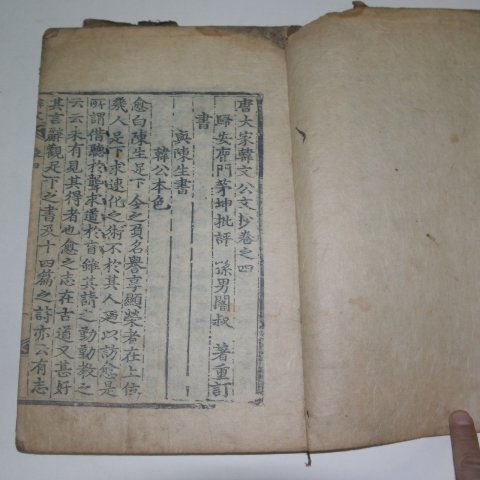 唐大家韓文公文抄卷之四
歸安鹿門茅坤批評 孫男闇叔 著重訂
書
與陳生書
韓公本色
愈白陳生足下今之負名譽享顯榮者在上位
幾人足下求速化之術不於其人乃以訪愈是
所謂借聽於聾求道於盲雖其請之勤勤教之
云云未有見其得者也愈之志在古道又甚好
其言辭觀足下之書及十四篇之詩亦云有志